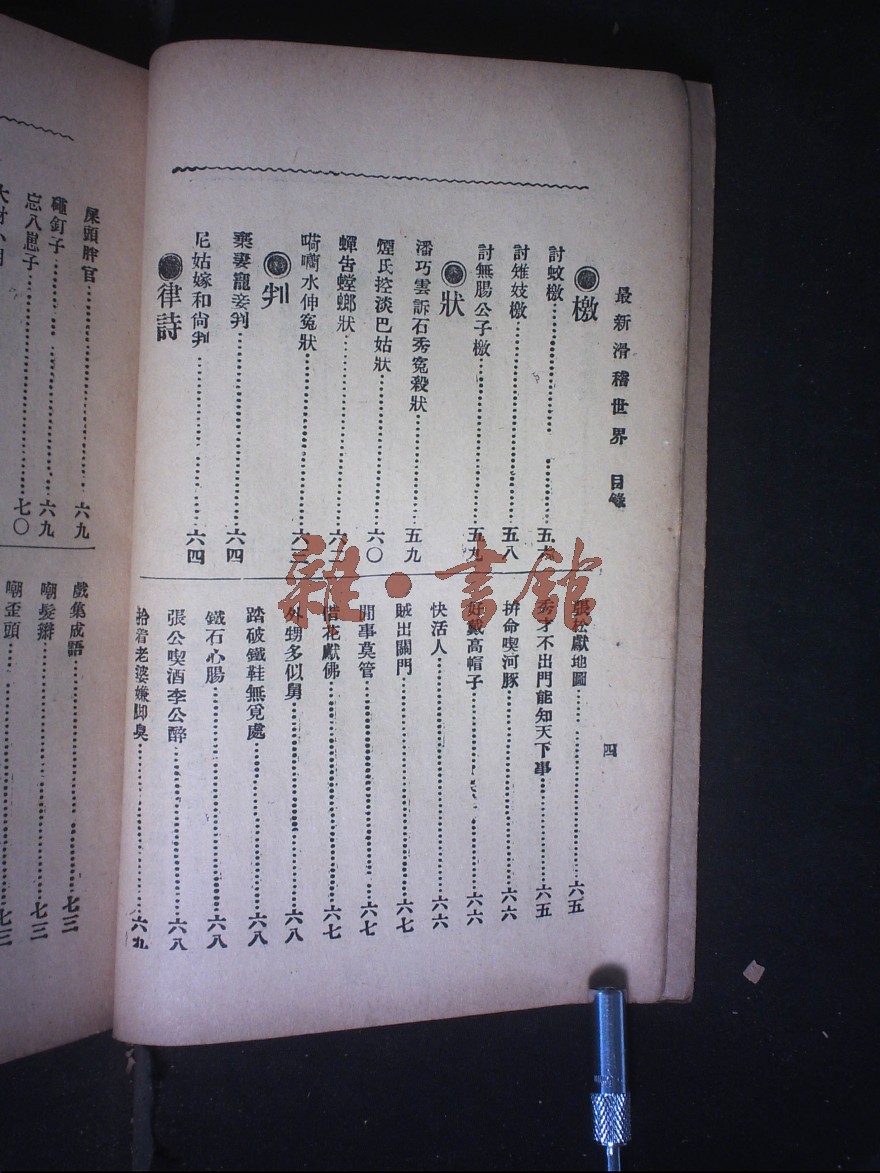 最新滑稽世界 目錄
四
●檄
討蚊檄……五六
討雉妓檄……五八
討無腸公子檄……五九
●狀
潘巧雲訴石秀冤殺狀……五九
煙氏控淡巴姑狀……六〇
蟬告螳螂狀……六二
嗬嘯水伸冤狀……六三
●判
棄妻寵妾判……六四
尼姑嫁和尙判……六四
●律詩
張松獻地圖……六五
秀才不出門能知天下事……六五
拚命喫河豚……六六
好戴高帽子……六六
快活人……六六
賊出關門……六七
閒事莫管……六七
借花獻佛……六七
外甥多似舅……六八
踏破鐵鞋無覓處……六八
鐵石心腸……六八
張公喫酒李公醉……六八
拾着老婆嫌脚臭……六九
屎頭牌官……六九
碰釘子……六九
忘八崽子……七〇
戲集成語……七三
嘲髮辮……七三
嘲歪頭……七三
雜·書館